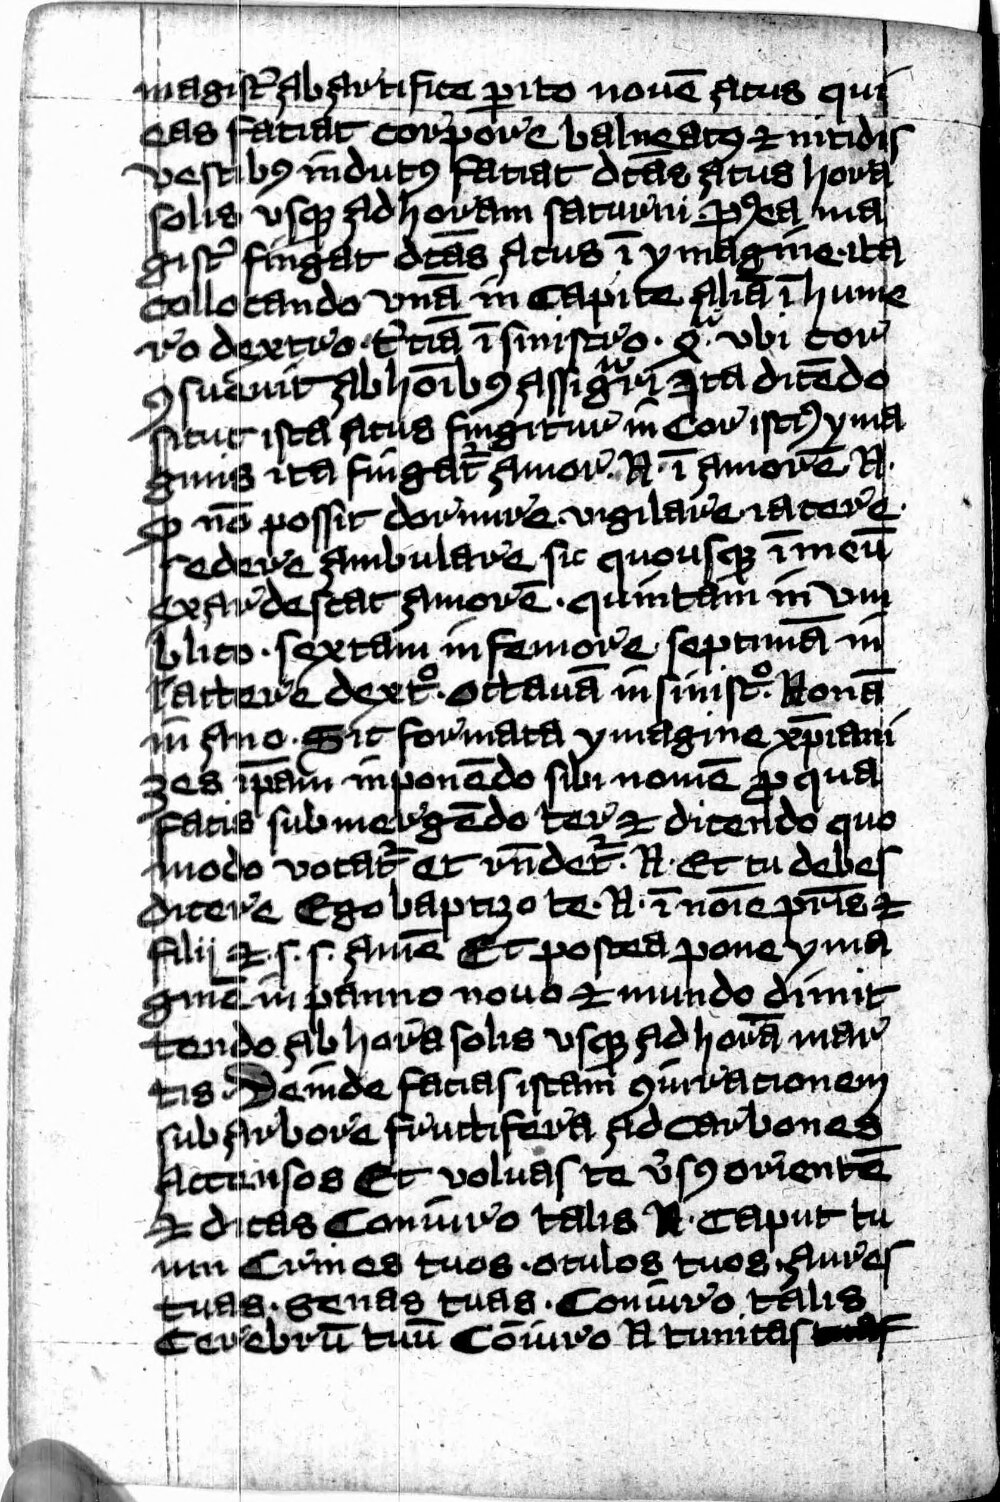 magist᷑ ab artifice perito nouē acus qui
eas faciat corpore balneatꝰ ⁊ nitidis
vestibꝰ indutꝰ faciat dc̄as acus hora
solis vsqꝫ ad horam saturni. pꝰea ma
gist᷑ fingat dc̄as acus ī ymagine. ita
collocando vnā in capite aliā ī hume
ro dextro. t᷑ciā ī sinistro. vbi cor
ꝯsueuit ab hoībꝰ assignari ita dicēdo
sicut ista acus fingitur in cor istiꝰ yma
ginis ita fingat᷑ amor .N. ī amorē .N.
ꝙ nō possit dormire. vigilare. iacere.
sedere ambulare sic quousqꝫ ī meū
exardescat amorē. quintam in vm
blico. sextam in femore. septimā in
lattere dextᵒ. octauā in sinistᵒ. Nonā
in ano. Sic formata ymagine xp̄iani
zes ip̄am inponēdo sibi nomē ꝓ qua
facis submergēdo ter ⁊ dicendo quo
modo vocat᷑ et rn̄det᷑. N. Et tu debes
dicere Ego baptizo te. N. ī noīe pr̄is ⁊
filij ⁊. s. s. amē Et postea pone yma
ginē in panno nouo ⁊ mundo dimit
tendo ab hora solis vsqꝫ ad horā mar
tis. Deinde facias istam ꝯiuracionem
sub arbore fructifera ad carbones
accensos Et voluas te v᷑sꝰ orientē
⁊ dicas Coniuro talis N. Caput tu
um Crines tuos. oculos tuos. aures
tuas. genas tuas. Coniuro talis
Cerebrū tuū Cōiuro N tunicas